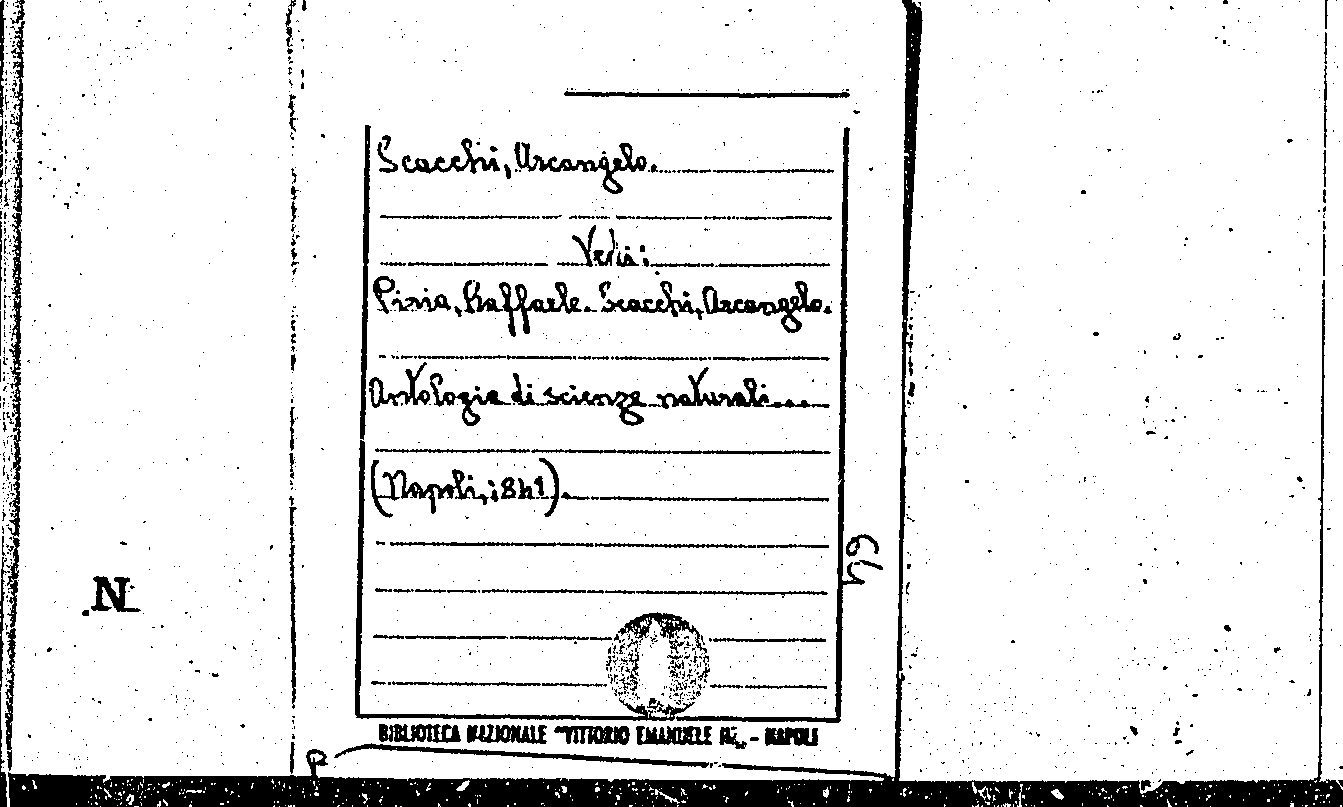 Scacchi, Arcangelo.
Vedi:
Piria, Raffaele. Scacchi, Arcangelo.
Antologia di scienze naturali...
(Napoli, 1841).
N
BIBLIOTECA NAZIONALE "VITTORIO EMANUELE III" - NAPOLI
P